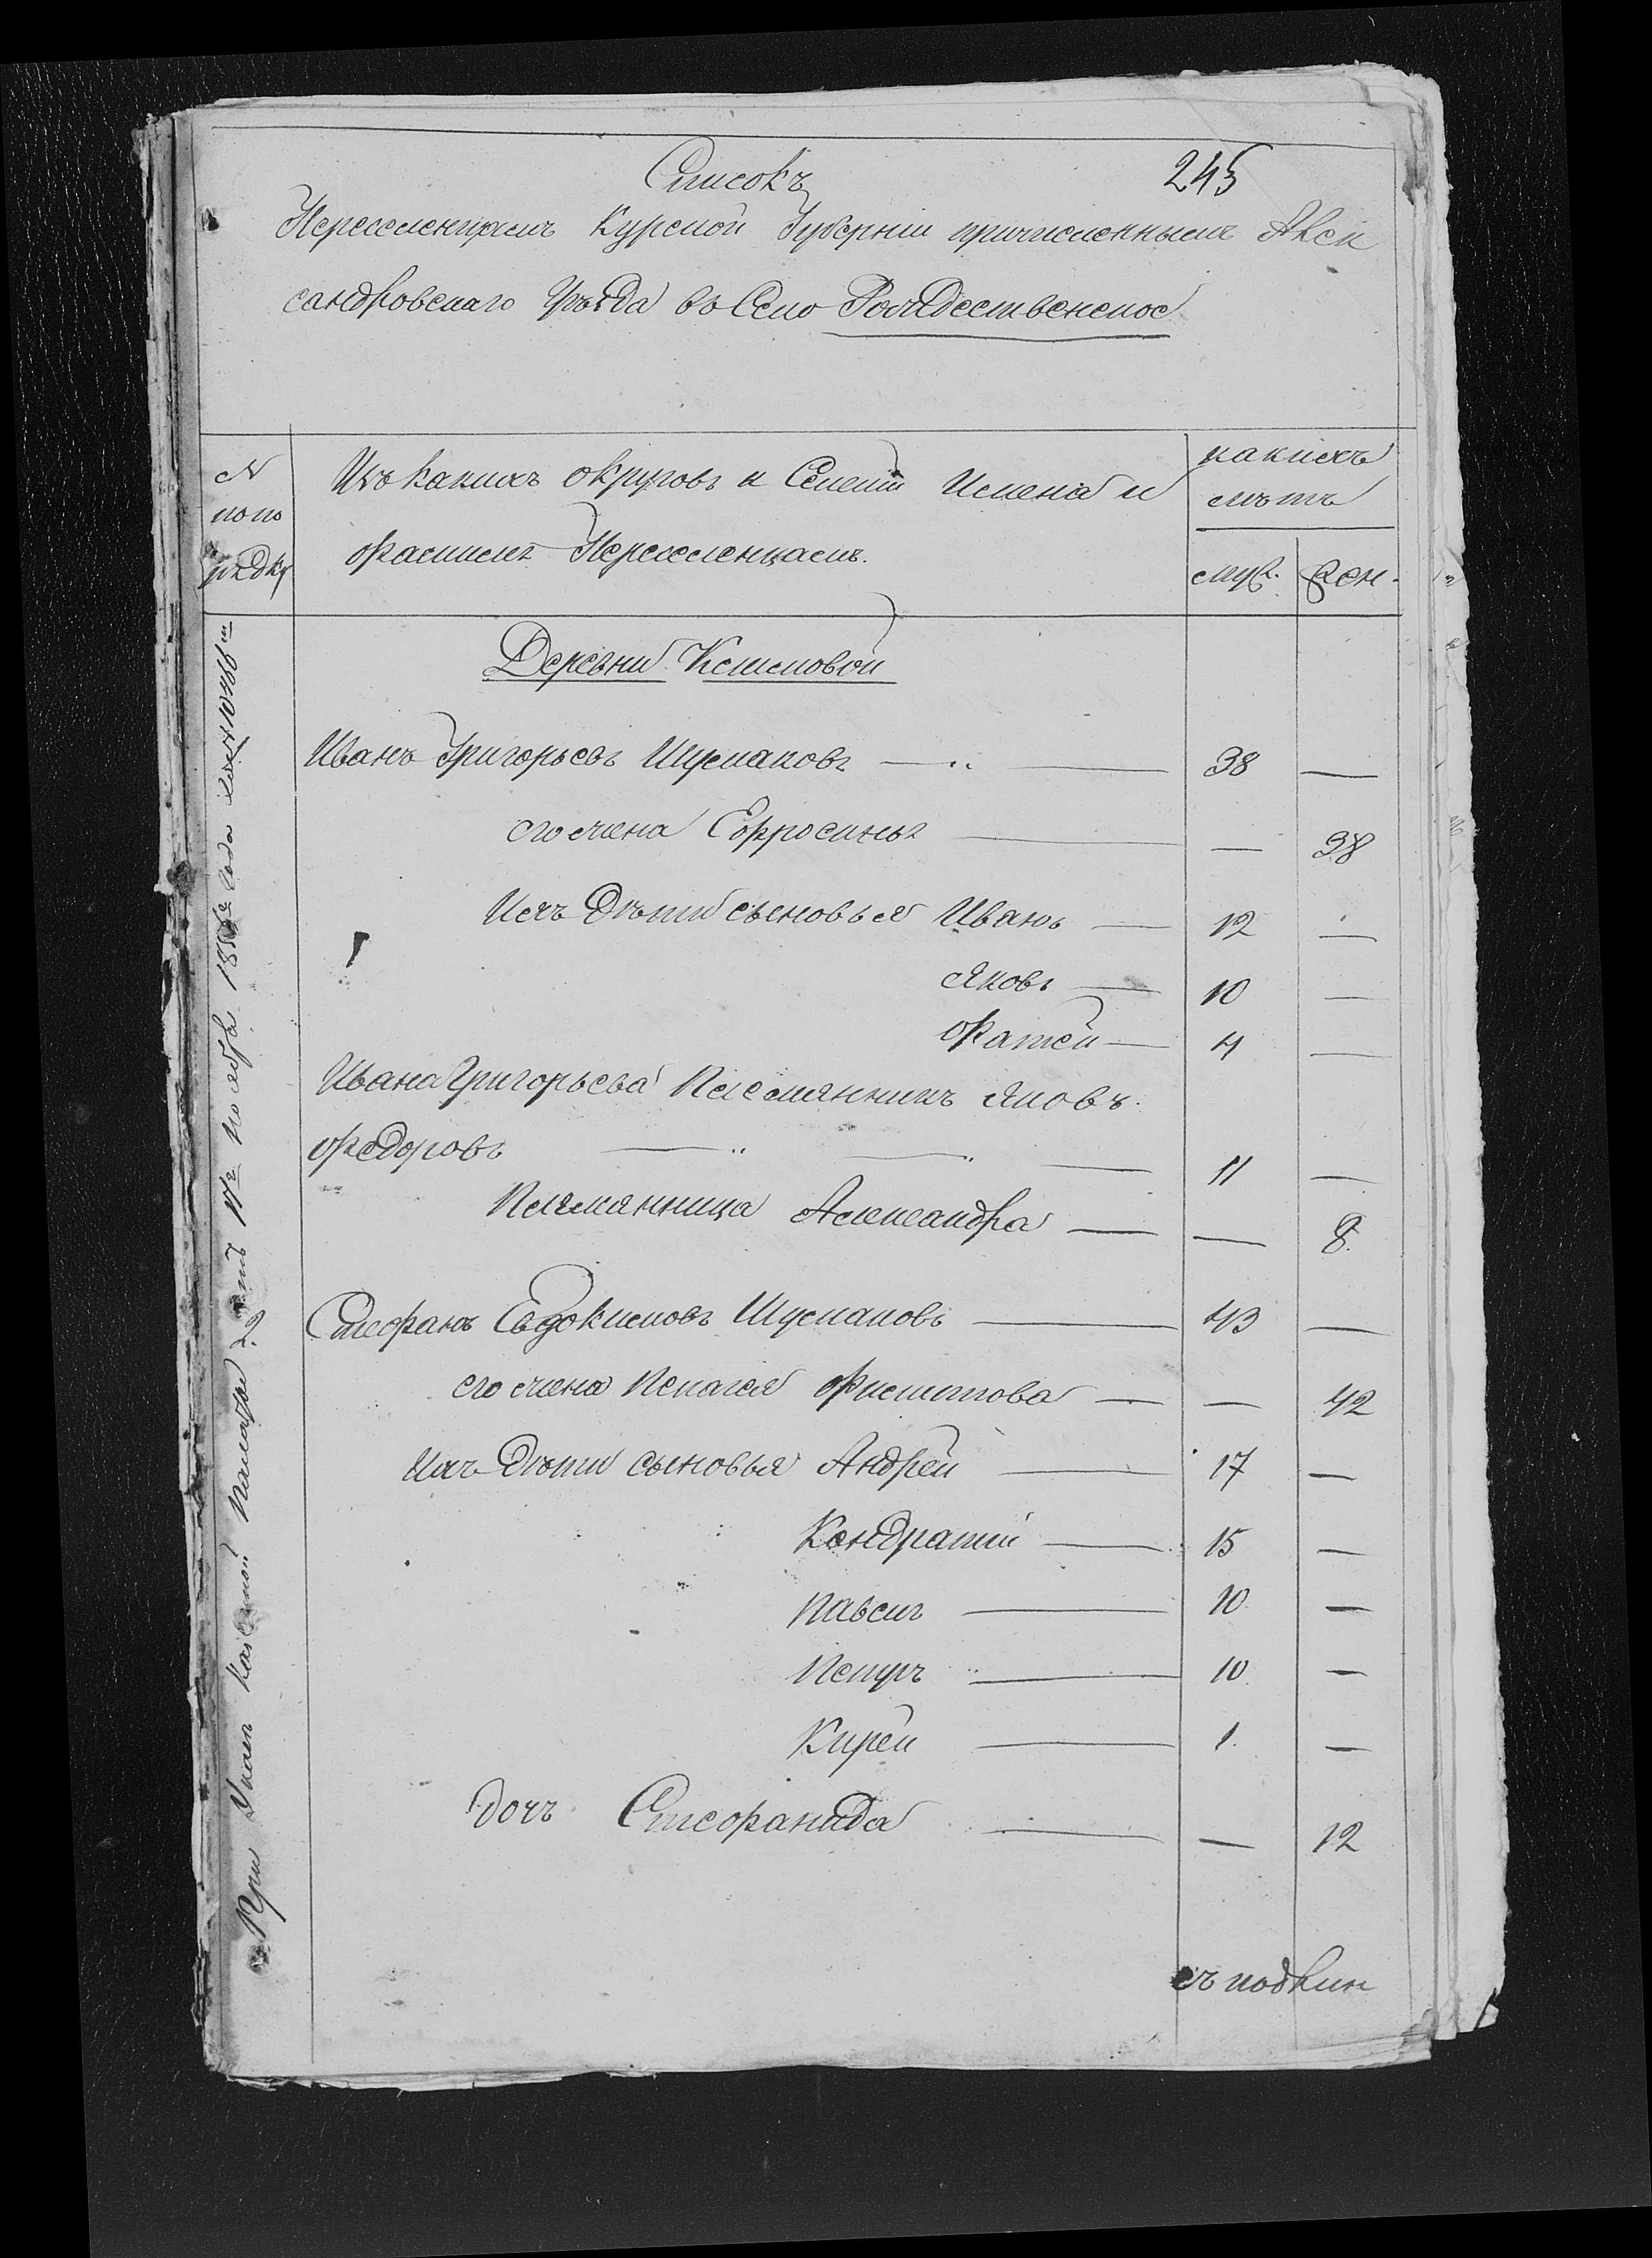 Списокъ
245
Переселенцамъ Курской Губерніи причисленнымъ Алек
сандровскаго Уѣзда въ Село Рождественское
N
по по
рядку
Изъ какихъ округовъ и Селеній Имена и
фамиліи Переселенцамъ.
какихъ
лѣтъ
муж. жен.
Деревни
Иванъ Григорьевъ Шумаковъ — 38 —
его жена Ефросинья — — 38
Ихъ дѣти сыновья Иванъ — 12 —
Яковъ — 10 —
Фатей — 4 —
Ивана Григорьева Племянникъ Яковъ
Федоровъ — 11 —
Племянница Александра — — 8.
Стефанъ Евдокимовъ Шумаковъ — 43 —
его жена Пелагея Филипова — — 42
Ихъ дѣти сыновья Андрей — 17 —
Кондратий — 15 —
Павелъ — 10 —
Петръ — 10. —
Кирей — 1. —
дочь Стефанида — — 12
При Указѣ Казенной Палаты отъ года